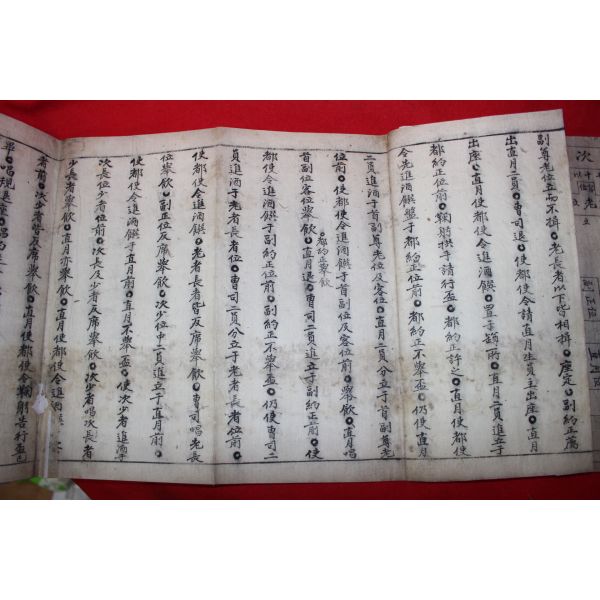 副尊老位立而不揖●老長者以下皆相揖●座定●副約正薦
出直月二員●曺司退●使都使令請直月生員主出座●直月
出座●直月使都使令進酒饌●置于饌所●直月二員進立于
都約正位前●鞠躬拱手請行盃●都約正許之●直月使都使
令先進酒饌盤于都約正位前●都約正不擧盃●仍使直月
二員進酒于首副尊老位及客位●直月二員分立于首副尊老
位前●使都使令進酒饌于首副位及客位前●擧飮●直月唱
首副位客位擧飮●都約正擧飮●直月退●曺司二員進立于副約正前●使
都使令進酒饌于副約正位前●副約正不擧盃●仍使曺司二
員進酒于老者長者位●曺司二員分立于老者長者位前●
使都使令進酒饌●老者長者皆反席擧飮●曺司唱老長
位擧飮●副約正位反席擧飮●次少位中二員進立于直月前●
使都使令進酒饌于直月前●直月不擧盃●使次少者進酒于
次長位少者位前●次長及少者反席擧飮●次少者唱次長者
少長者擧飮●直月亦擧飮●直月使都使令進酒饌于次
者前●次少者皆反席擧飮●直月使都使令鞠躬告行盃已
畢●唱規
次
老
立